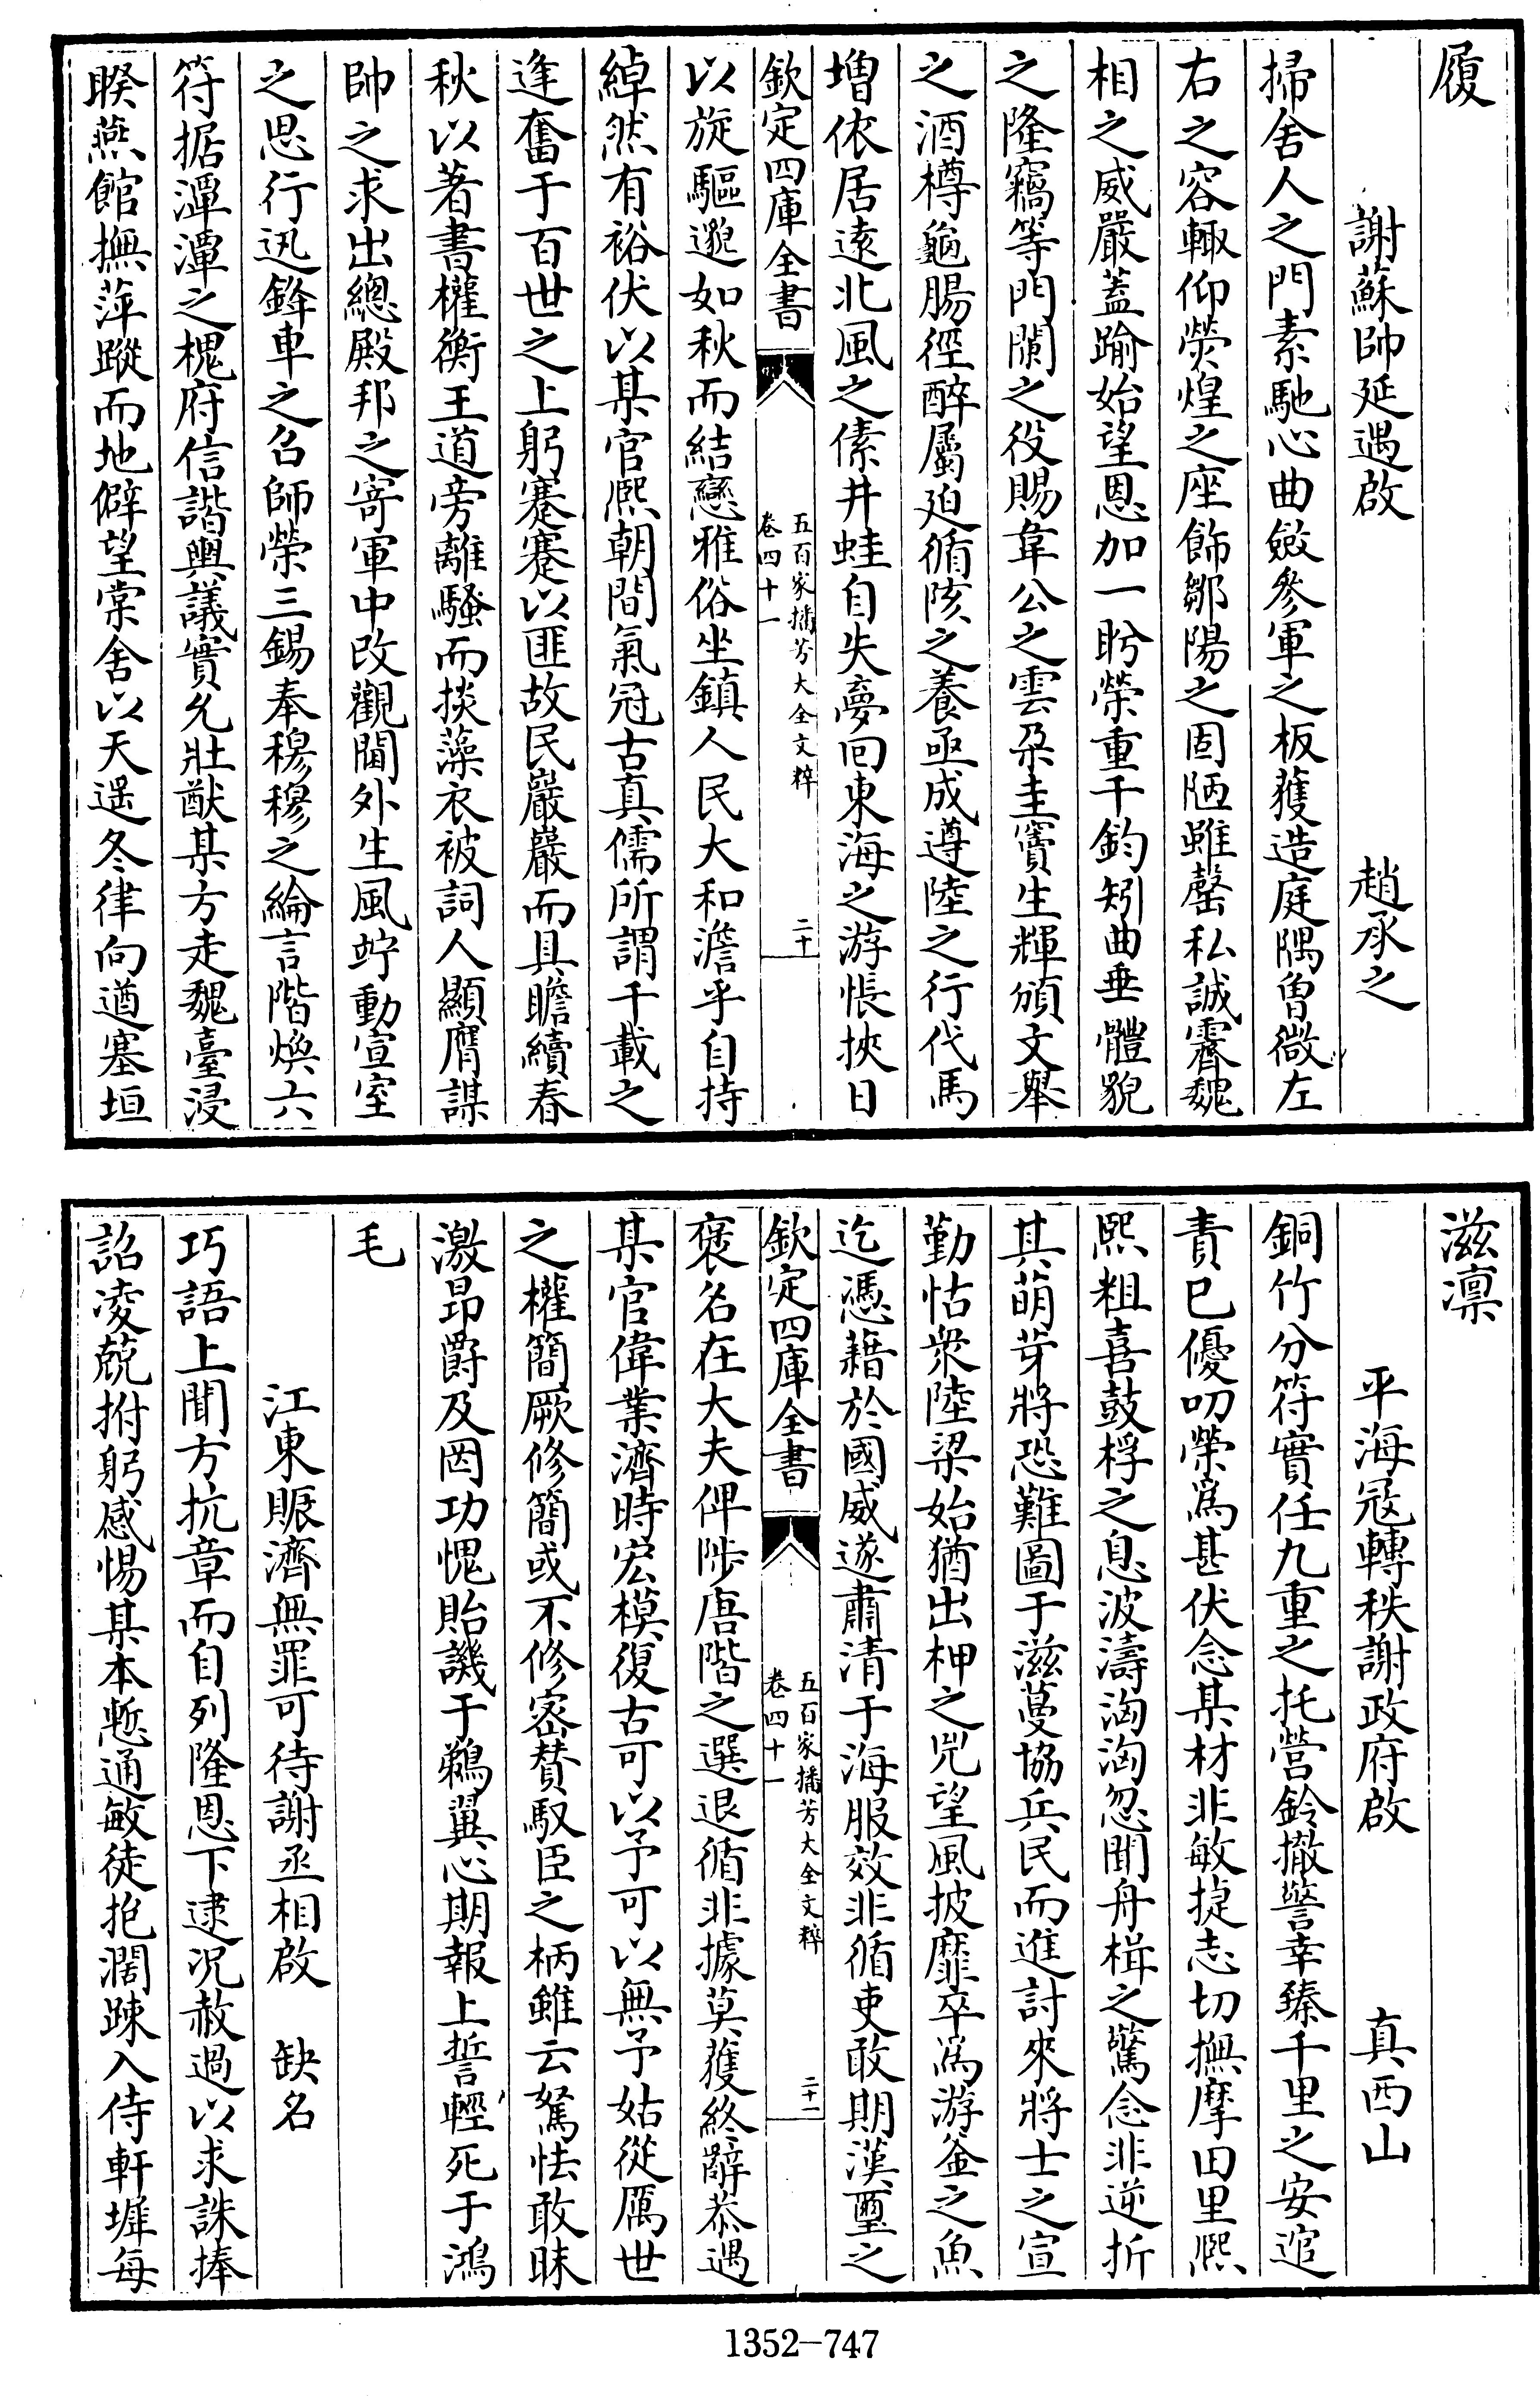 履
謝蘇帥延遇啟 趙承之
掃舍人之門素馳心曲斂參軍之板獲造庭隅曽微左
右之容輙仰熒煌之座飾鄒陽之固陋雖罄私誠霽魏
相之威嚴蓋踰始望恩加一盻榮重千鈞矧曲垂體貌
之隆竊等門闌之役賜韋公之雲朶圭竇生輝頒文舉
之酒樽龜腸徑醉屬廹循陔之養亟成遵陸之行代馬
増依居逺北風之傃井蛙自失夢囘東海之游悵挾日
欽定四庫全書
五百家播芳大全文粹
卷四十一
二十
以旋驅邈如秋而結戀雅俗坐鎮人民大和澹乎自持
綽然有裕伏以某官熈朝間氣冠古真儒所謂千載之
逢奮于百世之上躬蹇蹇以匪故民巖巖而具瞻續春
秋以著書權衡王道旁離騷而掞藻衣被詞人顯膺謀
帥之求出總殿邦之寄軍中改觀閫外生風竚動宣室
之思行迅鋒車之召師榮三錫奉穆穆之綸言階煥六
符据潭潭之槐府信諧輿議實允壯猷某方走魏臺浸
睽燕館撫萍蹤而地僻望棠舍以天遥冬律向遒塞垣
滋凛
平海冦轉秩謝政府啟 真西山
銅竹分符實任九重之托營鈴撤警幸臻千里之安逭
責已優叨榮爲甚伏念某材非敏㨗志切撫摩田里熈
熙粗喜鼓桴之息波濤洶洶忽聞舟楫之驚念非逆折
其萌芽將恐難圖于滋蔓協兵民而進討來將士之宣
勤怙衆陸梁始猶出柙之兕望風披靡卒爲游釜之魚
迄憑藉於國威遂肅清于海服效非循吏敢期漢璽之
欽定四庫全書
五百家播芳大全文粹
卷四十一
二十一
褒名在大夫俾陟唐階之選退循非據莫獲終辭恭遇
某官偉業濟時宏模復古可以予可以無予姑從厲世
之權簡厥修簡或不修宻賛馭臣之柄雖云駑怯敢昧
激昻爵及罔功愧貽譏于鵜翼心期報上誓輕死于鴻
毛
江東賑濟無罪可待謝丞相啟 缺名
巧語上聞方抗章而自列隆恩下逮况赦過以求誅捧
詔凌兢拊躬感惕某本慙通敏徒抱濶踈入侍軒墀每
1352-747